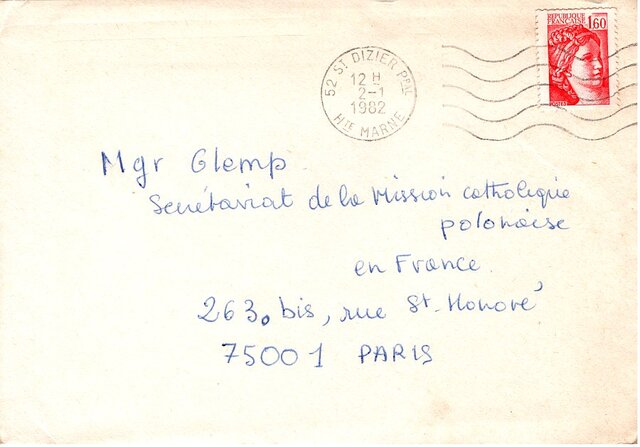 RÉPUBLIQUE
FRANÇAISE
1,60
POSTES
52 ST DIZIER PPAL
12 H
2-1
1982
HTE MARNE
Mgr Glemp
Secrétariat de la Mission catholique
polonaise
en France
263. bis, rue St. Honoré
75001 PARIS